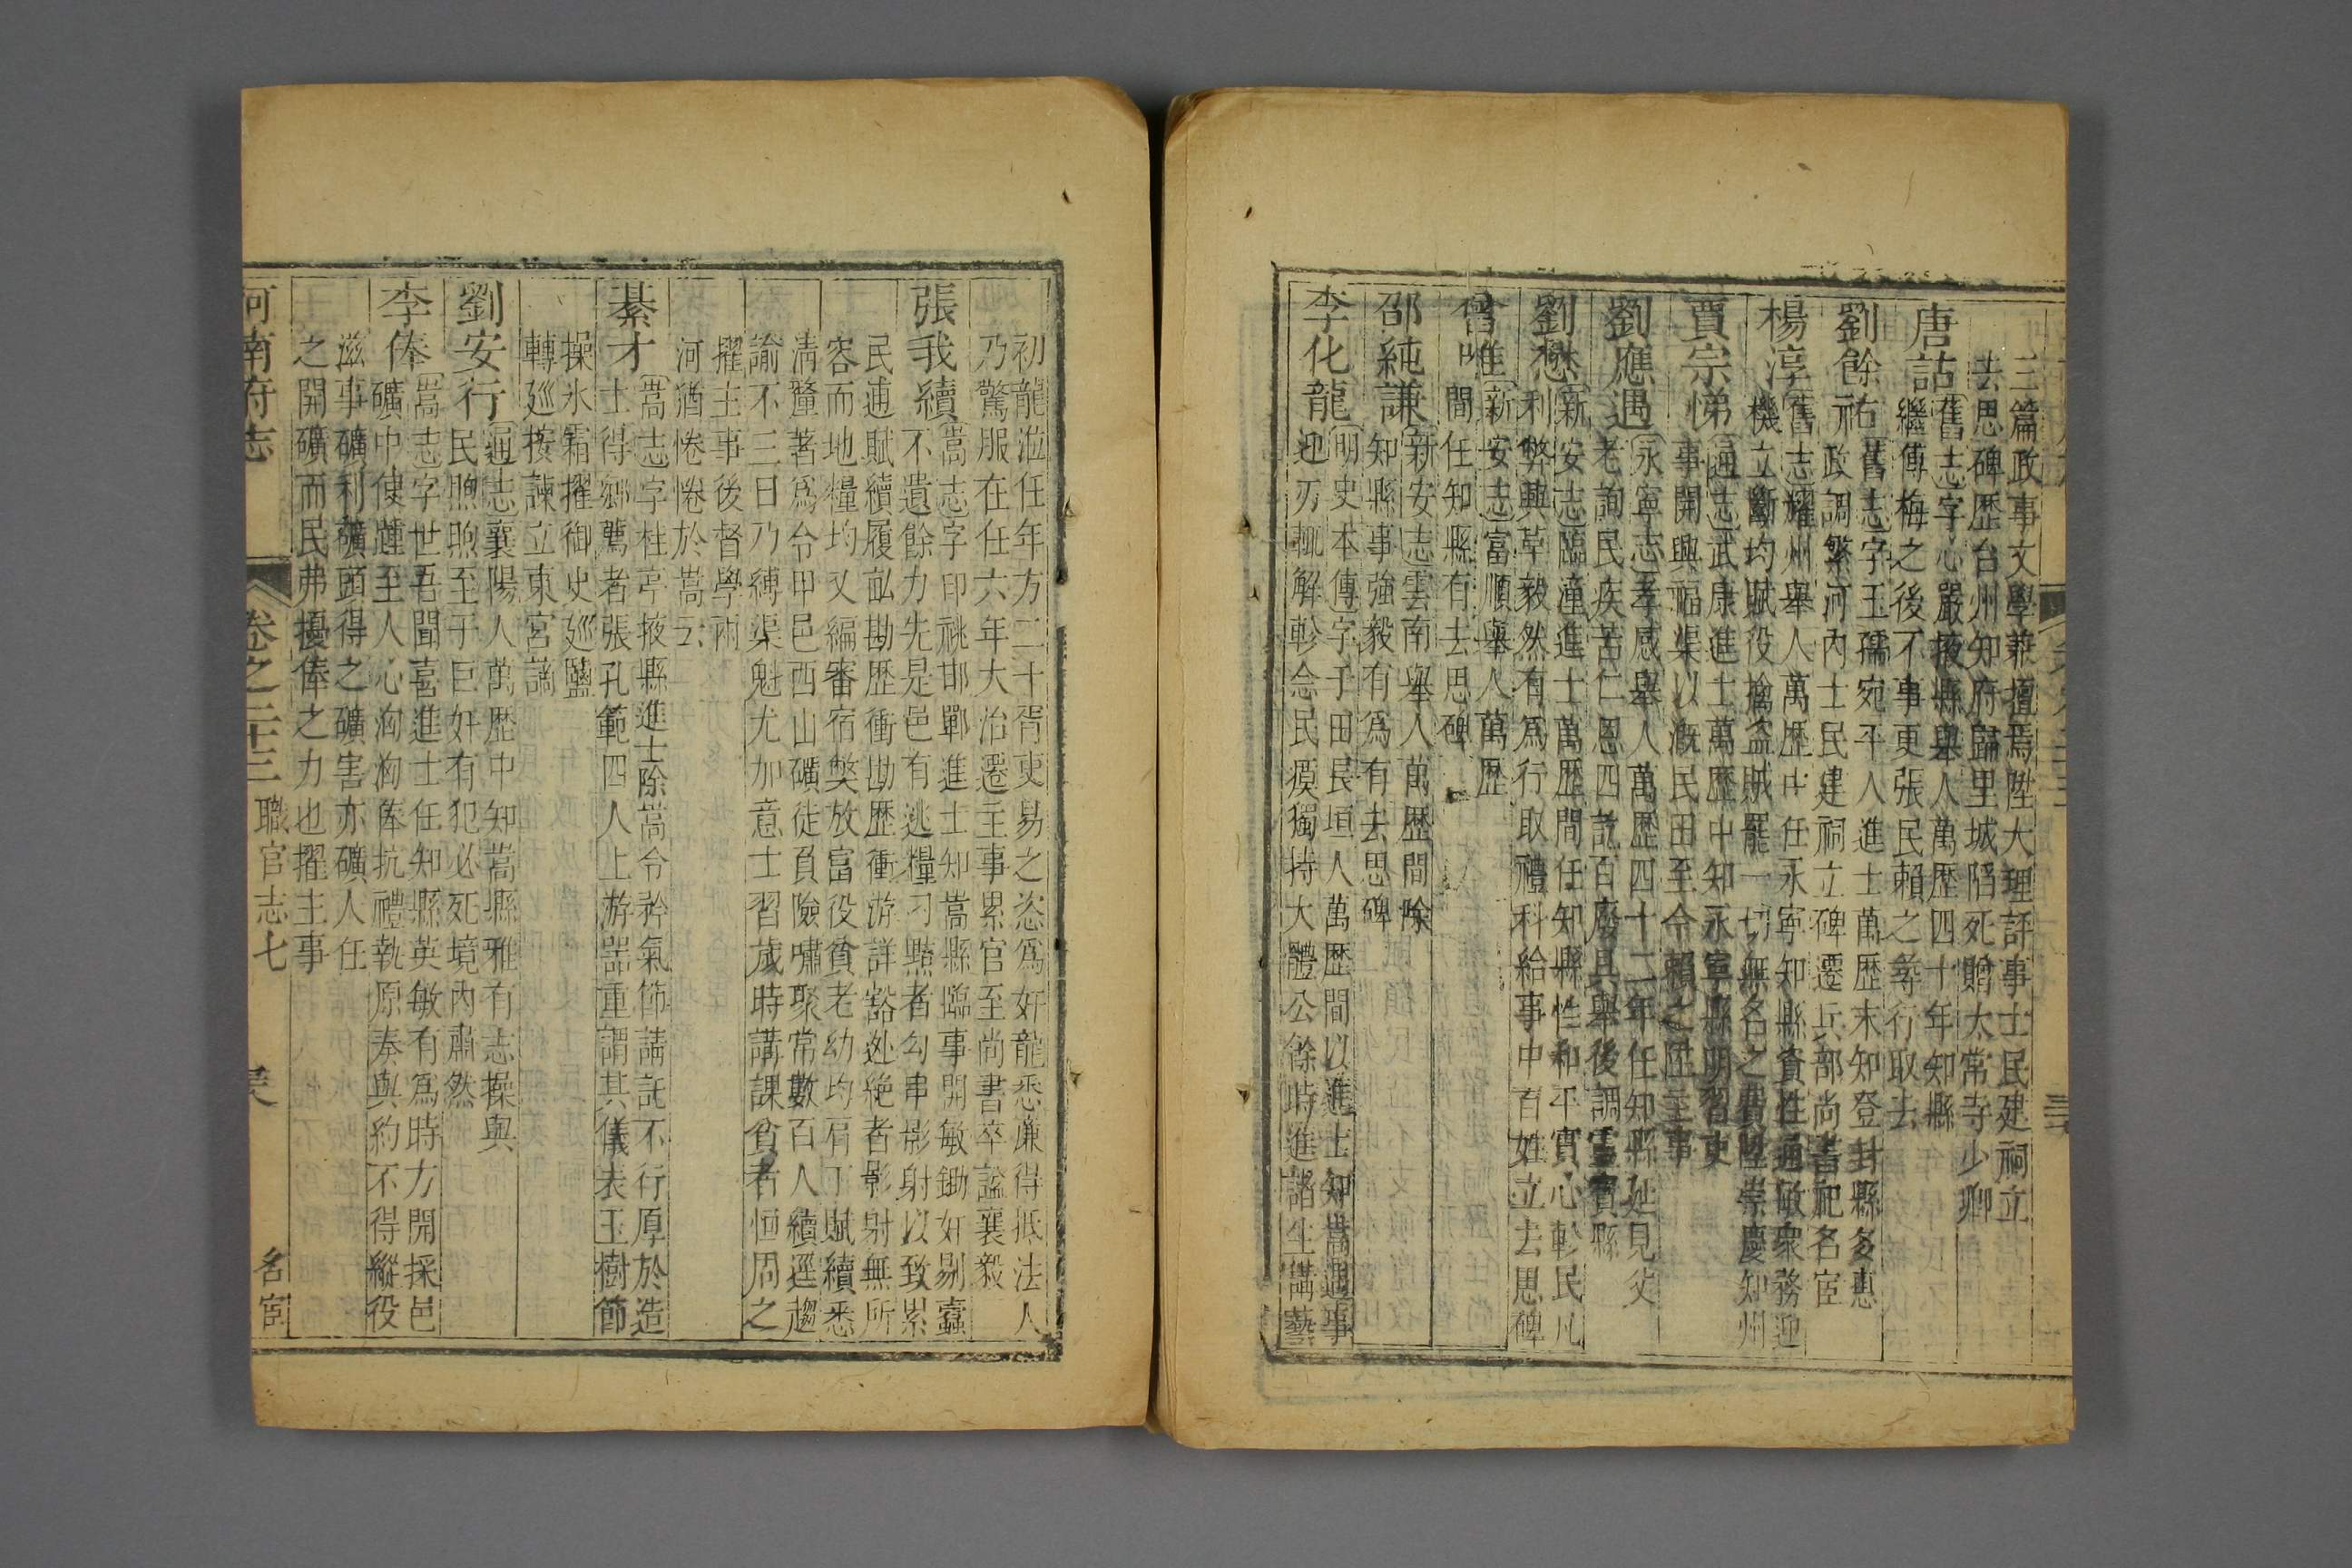 三篇政事文學兼擅焉陞大理評事士民建祠立
去思碑歷台州知府歸里城陷死贈太常寺少卿
唐詁
舊志字心嚴掖縣舉人萬歷四十年知縣
繼傅梅之後不事更張民賴之等行取去
劉餘祐
舊志字玉孺宛平人進士萬歷末知登封縣多惠
政調繁河內士民建祠立碑遷兵部尚書祀名宦
楊淳
舊志耀州舉人萬歷中任永寧知縣資性通敏衆務迎
機立斷均賦役擒盜賊罷一切無名之費陞崇慶知州
賈宗悌
通志武康進士萬歷中知永寧縣明習吏
事開興福渠以溉民田至今賴之陞主事
劉應遇
永寧志孝感舉人萬歷四十二年任知縣延見父
老詢民疾苦仁恩四訖百廢具舉後調靈寶縣
劉懋
新安志臨潼進士萬歷間任知縣性和平實心軫民凡
利弊興革毅然有爲行取禮科給事中百姓立去思碑
曾唯
新安志富順舉人萬歷
間任知縣有去思碑
邵純謙
新安志雲南舉人萬歷間除
知縣事強毅有爲有去思碑
李化龍
明史本傳字于田長垣人萬歷間以進士知嵩遇事
迎刃輒解軫念民瘼獨持大體公餘時進諸生講藝
初龍涖任年方二十胥吏易之恣爲奸龍悉廉得抵法人
乃驚服在任六年大治遷主事累官至尚書卒謚襄毅
張我續
嵩志字印祧邯鄲進士知嵩縣臨事開敏鋤奸剔蠹
不遺餘力先是邑有逃糧刁黠者勾串影射以致累
民逋賦續履畝勘歷衝勘歷衝游詳豁逃絕者影射無所
容而地糧均又編審宿獘放富役貧老幼均屑丁賦續悉
淸釐著爲令甲邑西山礦徒負險嘯聚常數百人續遲趨
諭不三日乃縛渠魁尤加意士習歲時講課貧者恒周之
擢主事後督學兩
河猶惓惓於嵩云
綦才
嵩志字柱亭掖縣進士除嵩令矜氣節請託不行厚於造
士得鄉薦者張孔範四人上游器重謂其儀表玉樹節
操氷霜擢御史廵鹽
轉廵按諫立東宮謫
劉安行
通志襄陽人萬歷中知嵩縣雅有志操與
民煦煦至于巨奸有犯必死境內肅然
李俸
嵩志字世吾聞喜進士任知縣英敏有爲時方開採邑
礦中使踵至人心洶洶俸抗禮執原奏與約不得縱役
滋事礦利礦頭得之礦害亦礦人任
之開礦而民弗擾俸之力也擢主事
河南府志 卷之二十三 職官志七 名宦